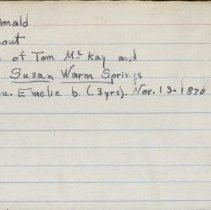 onald
out
of Tom McKay and
Susan Warm Springs
u. Emelie b. (3yrs). Nov. 13-1870